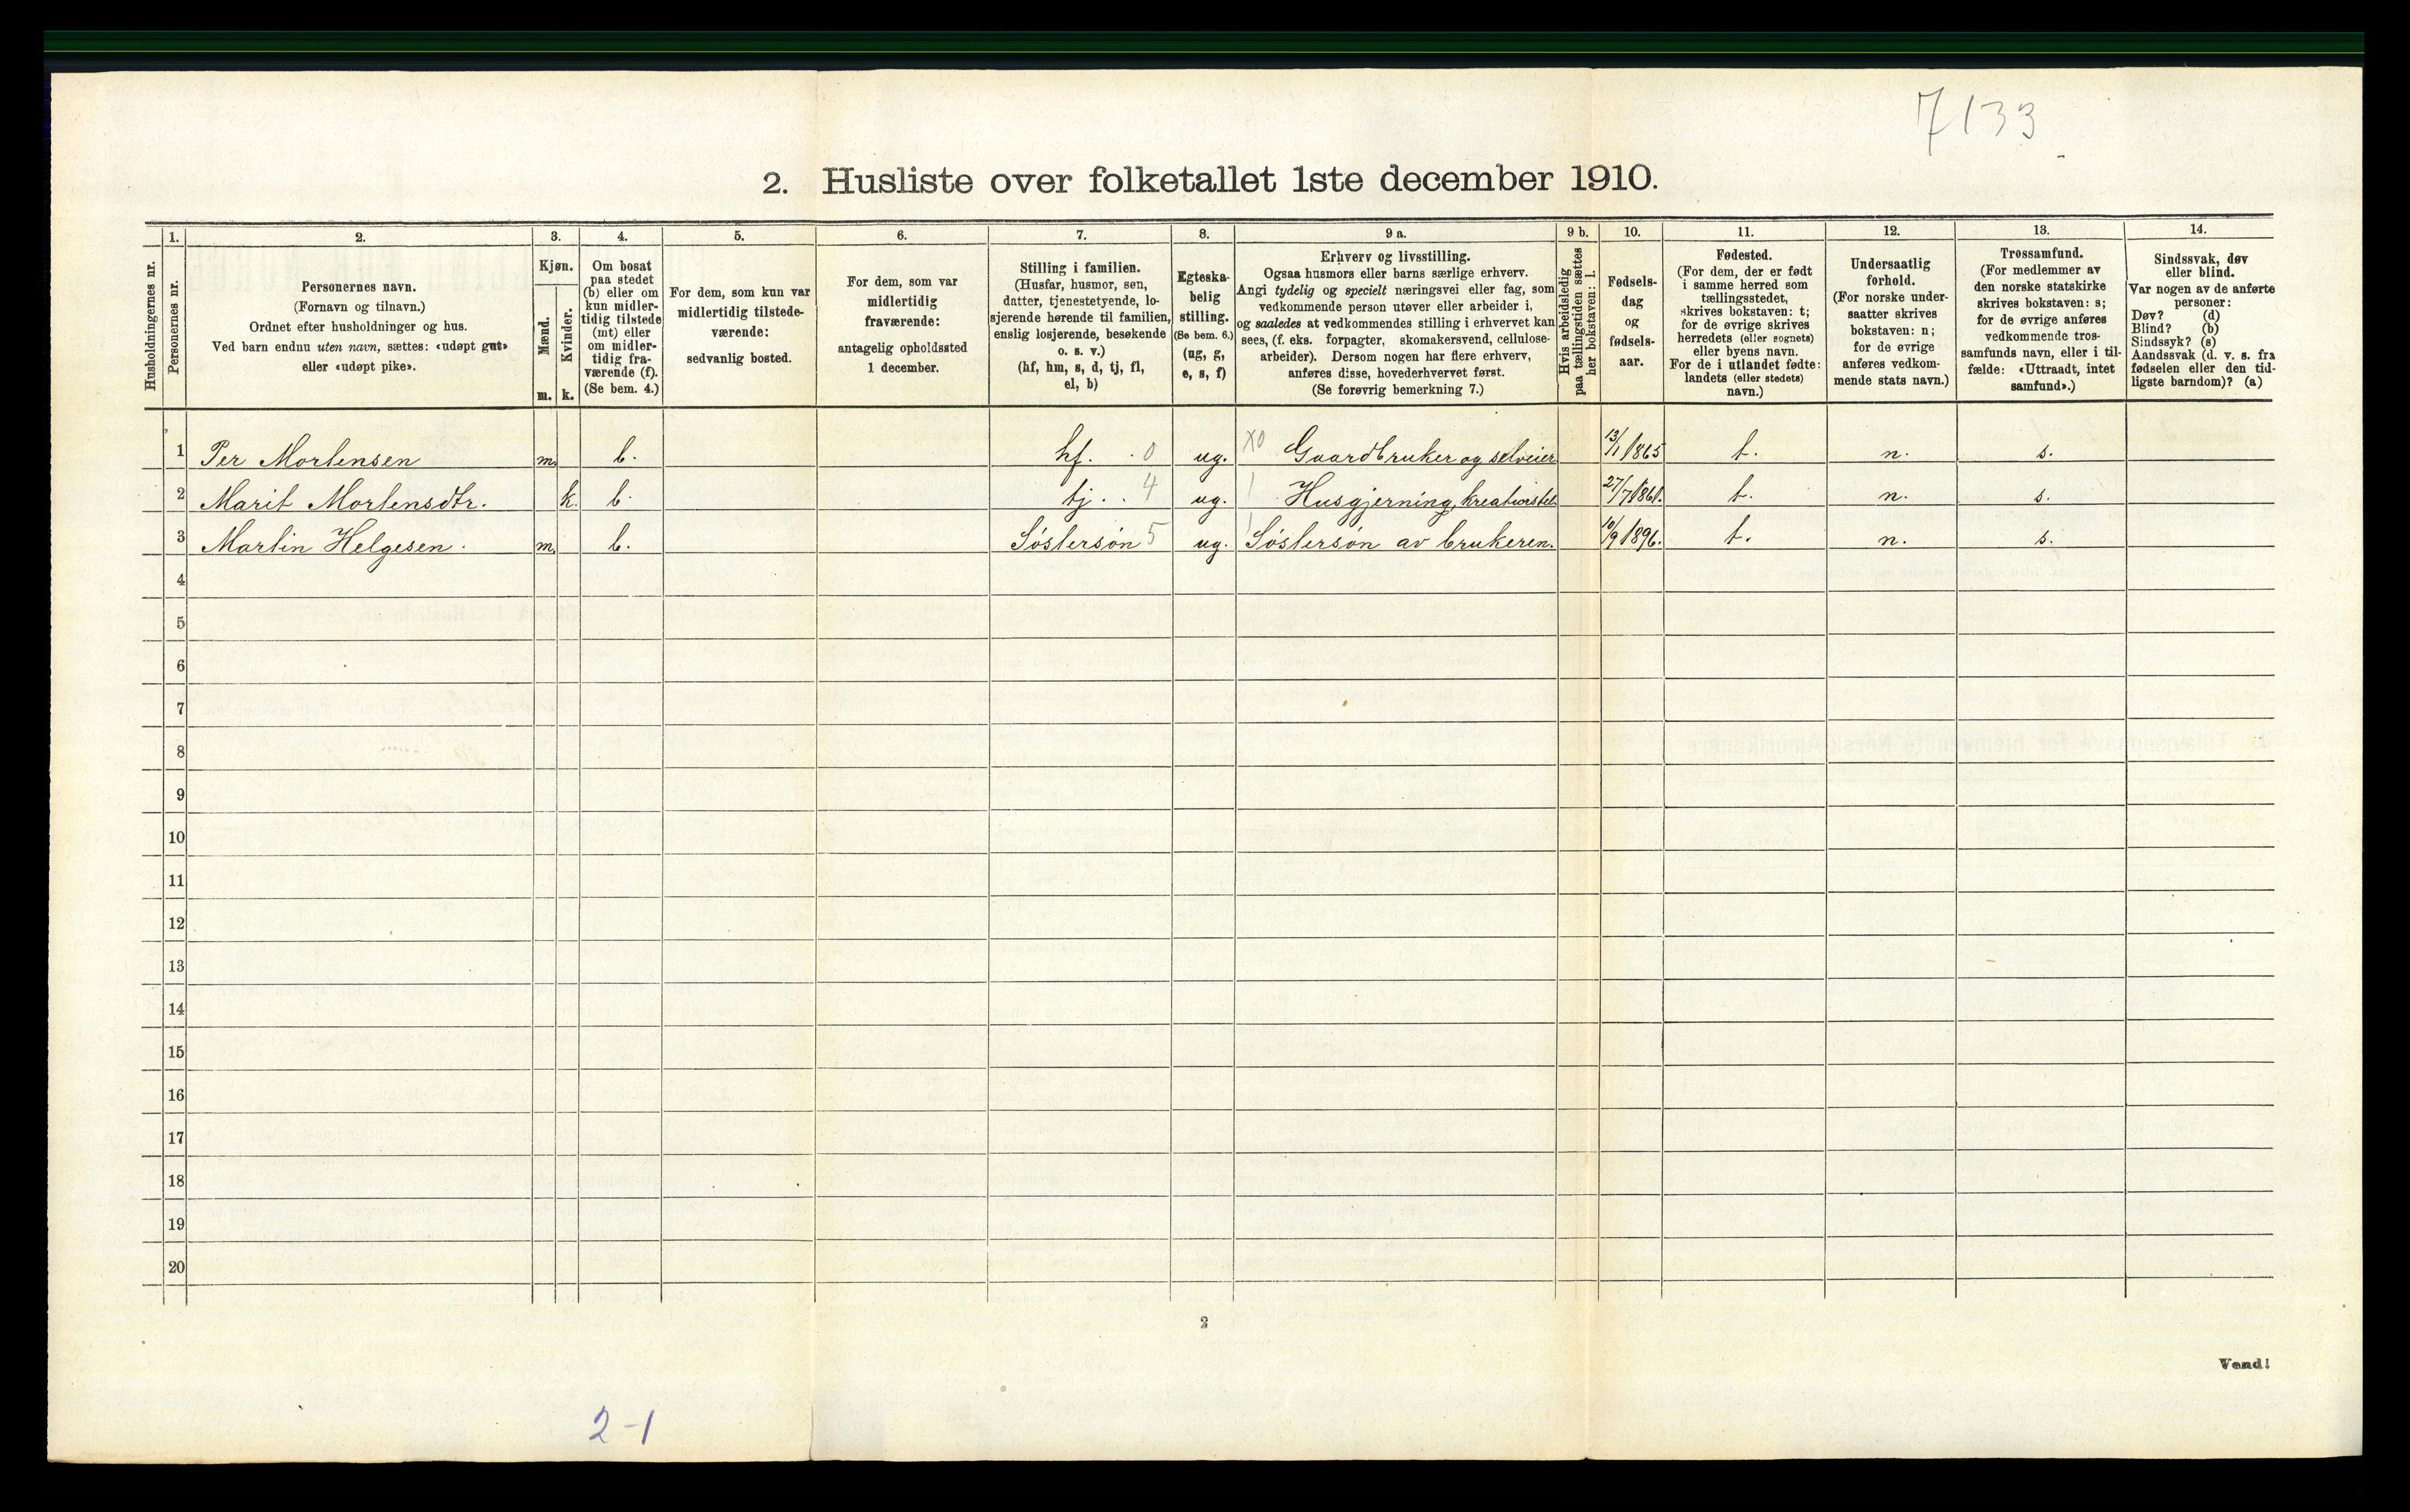 7133
2. Husliste over folketallet 1ste december 1910.
Husholdningernes nr.
1.
Personernes nr.
2.
Personernes navn.
(Fornavn og tilnavn.)
Ordnet efter husholdninger og hus.
Ved barn endnu uten navn, sættes: «udøpt gut»
eller «udøpt pike».
3.
Kjøn.
Mænd.
Kvinder.
m. k.
4.
Om bosat
paa stedet
(b) eller om
kun midler-
tidig tilstede
(mt) eller
om midler-
tidig fra-
værende (f).
(Se bem. 4.)
5.
For dem, som kun var
midlertidig tilstede-
værende:
sedvanlig bosted.
6.
For dem, som var
midlertidig
fraværende:
antagelig opholdssted
1 december.
7.
Stilling i familien.
(Husfar, husmor, søn,
datter, tjenestetyende, lo-
sjerende hørende til familien,
enslig losjerende, besøkende
o. s. v.)
(hf, hm, s, d, tj, fl,
el, b)
8.
Egteska-
belig
stilling.
(Se bem. 6.)
(ug, g,
e, s, f)
9 a.
Erhverv og livsstilling.
Ogsaa husmors eller barns særlige erhverv.
Angi tydelig og specielt næringsvei eller fag, som
vedkommende person utøver eller arbeider i,
og saaledes at vedkommendes stilling i erhvervet kan
sees, (f. eks. forpagter, skomakersvend, cellulose-
arbeider). Dersom nogen har flere erhverv,
anføres disse, hovederhvervet først.
(Se forøvrig bemerkning 7.)
9 b.
Hvis arbeidsledig
paa tællingstiden sættes
her bokstaven: l.
10.
Fødsels-
dag
og
fødsels-
aar.
11.
Fødested.
(For dem, der er født
i samme herred som
tællingsstedet,
skrives bokstaven: t;
for de øvrige skrives
herredets (eller sognets)
eller byens navn.
For de i utlandet fødte:
landets (eller stedets)
navn.)
12.
Undersaatlig
forhold.
(For norske under-
saatter skrives
bokstaven: n;
for de øvrige
anføres vedkom-
mende stats navn.)
13.
Trossamfund.
(For medlemmer av
den norske statskirke
skrives bokstaven: s;
for de øvrige anføres
vedkommende tros-
samfunds navn, eller i til-
fælde: «Uttraadt, intet
samfund».)
14.
Sindssvak, døv
eller blind.
Var nogen av de anførte
personer:
Døv? (d)
Blind? (b)
Sindssyk? (s)
Aandssvak (d. v. s. fra
fødselen eller den tid-
ligste barndom)? (a)
1 Per Mortensen m. b. hf. 0 ug. X0 Gaardbruker og selveier 13/1 1865 t. n. s.
2 Marit Mortensdtr. k. b. tj. 4 ug. Husgjerning, kreaturstel 27/7 1861. t. n. s.
3 Martin Helgesen. m. b. Söstersön 5 ug. Söstersön av brukeren. 10/9 1896. t. n. s.
4
5
6
7
8
9
10
11
12
13
14
15
16
17
18
19
20
2
Vend!
2-1